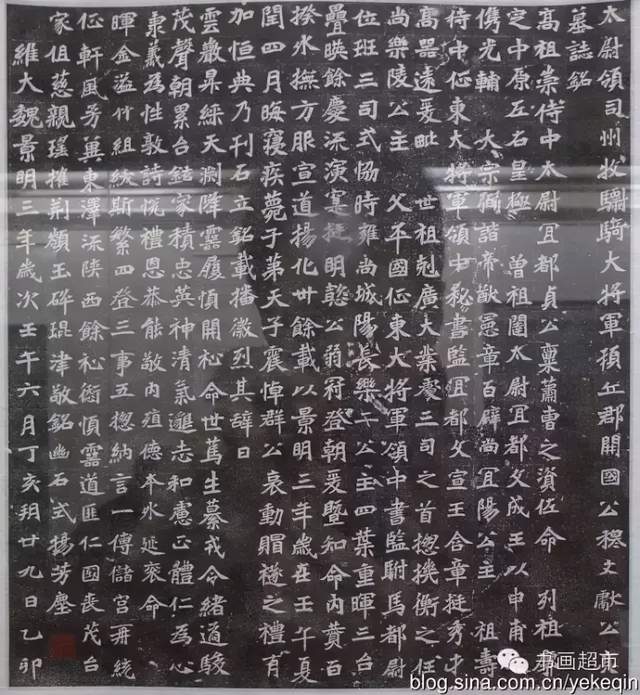 太尉領司州牧驃騎大將軍頓丘郡開國公穆文獻公亮
墓誌銘
高祖崇侍中太尉冝都貞公稟蕭曹之資佐命 列祖
定中原左右皇極 曾祖闥太尉冝都文成王以申甫
儁光輔 大宗彌諧帝猷憲章百辟尚冝陽公主 祖壽
侍中征東大將軍領中秘書監冝都文宣王含章挺秀中
高器遠爰毗 世祖剋廣大業處三司之首揔機衡之任
尚樂陵公主 父平國征東大將軍領中書監駙馬都尉
位班三司式協時雍尚城陽長樂二公主四葉重暉三台
疊暎餘慶流演寔挺明懿公弱冠登朝爰暨知命內贊百
揆外撫方服宣道揚化卅餘載以景明三年歲在壬午夏
閏四月晦寢疾薨于苐天子震悼群公哀動賵襚之禮有
加恒典乃刊石立銘載播徽烈其辭曰
雲敷杲綵天渕降靈履慎開祉命世篤生纂戎令緒逌駿
茂聲朝累台鉉家積忠英神清氣邈志和慮正體仁為心
秉義為性敦詩悅禮恩恭能敬內殖德本外延袞命
暉金溢竹組紱斯繁四登三事五揔納言一傅儲宮再統
征軒風芳冀東澤流陝西餘祉慎靈道匪仁國喪茂台
家徂慈親瑤摧荊巔玉碎琨津敬銘幽石式揚芳塵
維大魏景明三年歲次壬午六月丁亥朔廿九日乙卯
书画超市
blog.sina.com.cn/yekeqin